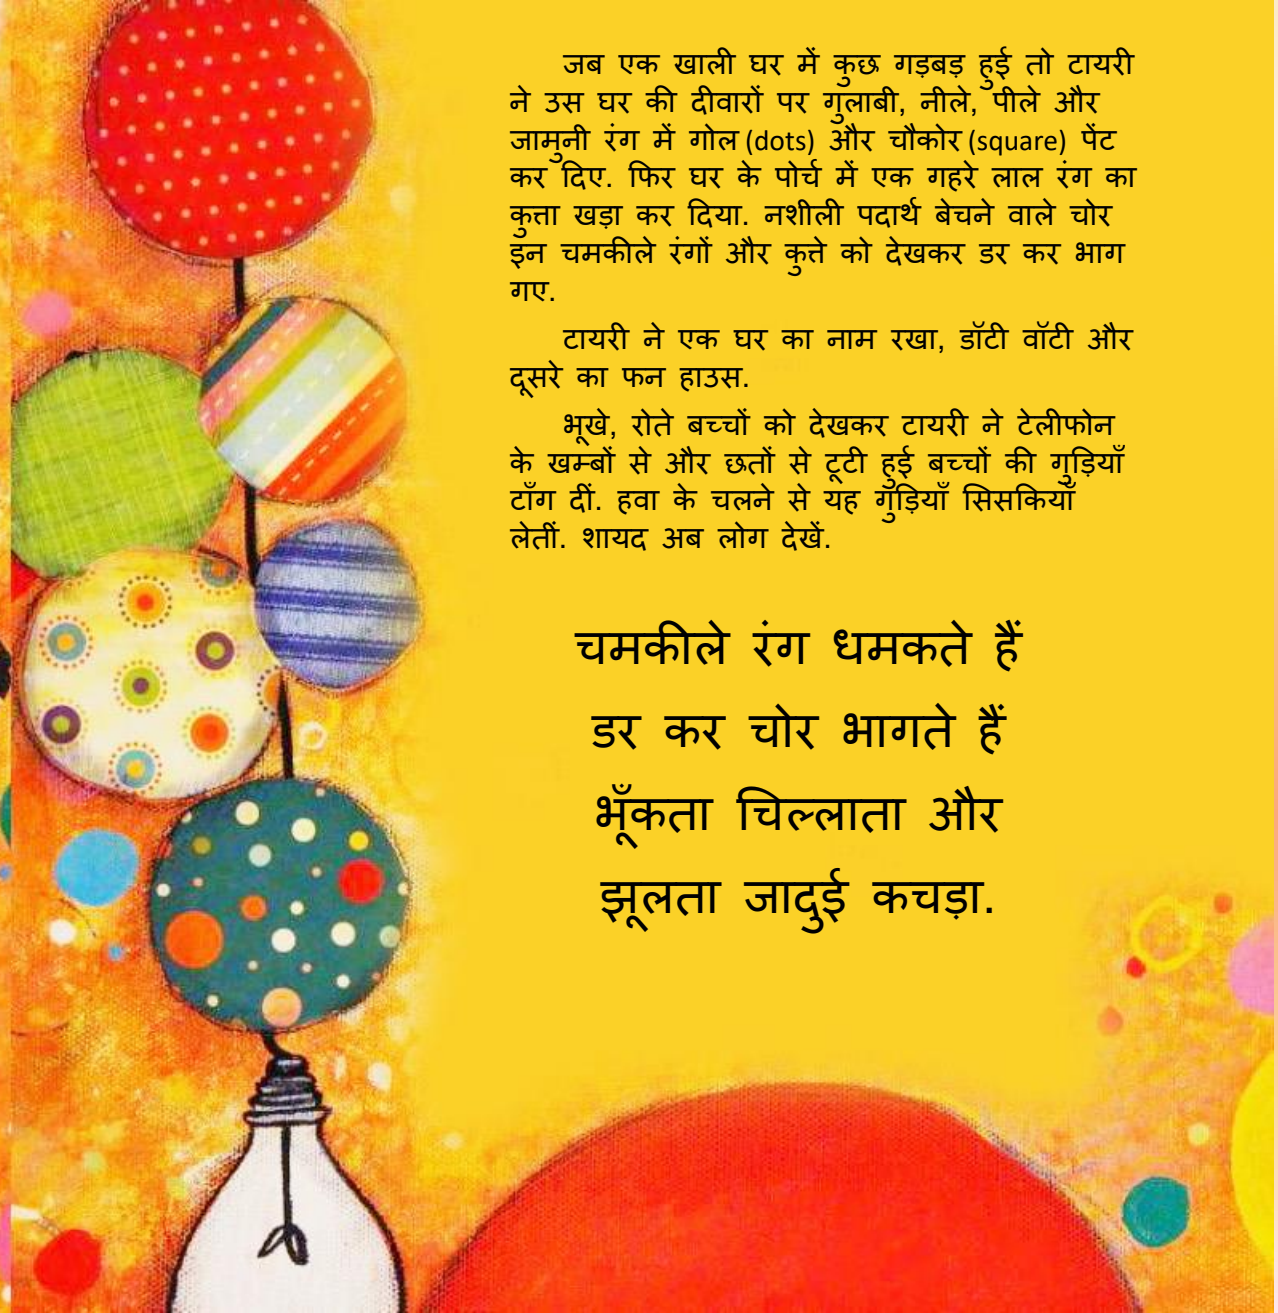 जब एक खाली घर में कुछ गड़बड़ हुई तो टायरी
ने उस घर की दीवारों पर गुलाबी, नीले, पीले और
जामुनी रंग में गोल (dots) और चौकोर (square) पेंट
कर दिए. फिर घर के पोर्च में एक गहरे लाल रंग का
कुत्ता खड़ा कर दिया. नशीली पदार्थ बेचने वाले चोर
इन चमकीले रंगों और कुत्ते को देखकर डर कर भाग
गए.
टायरी ने एक घर का नाम रखा, डॉटी वॉटी और
दूसरे का फन हाउस.
भूखे, रोते बच्चों को देखकर टायरी ने टेलीफोन
के खम्बों से और छतों से टूटी हुई बच्चों की गुड़ियाँ
टाँग दीं. हवा के चलने से यह गुड़ियाँ सिसकियाँ
लेतीं. शायद अब लोग देखें.
चमकीले रंग धमकते हैं
डर कर चोर भागते हैं
भूँकता चिल्लाता और
झूलता जादुई कचड़ा.